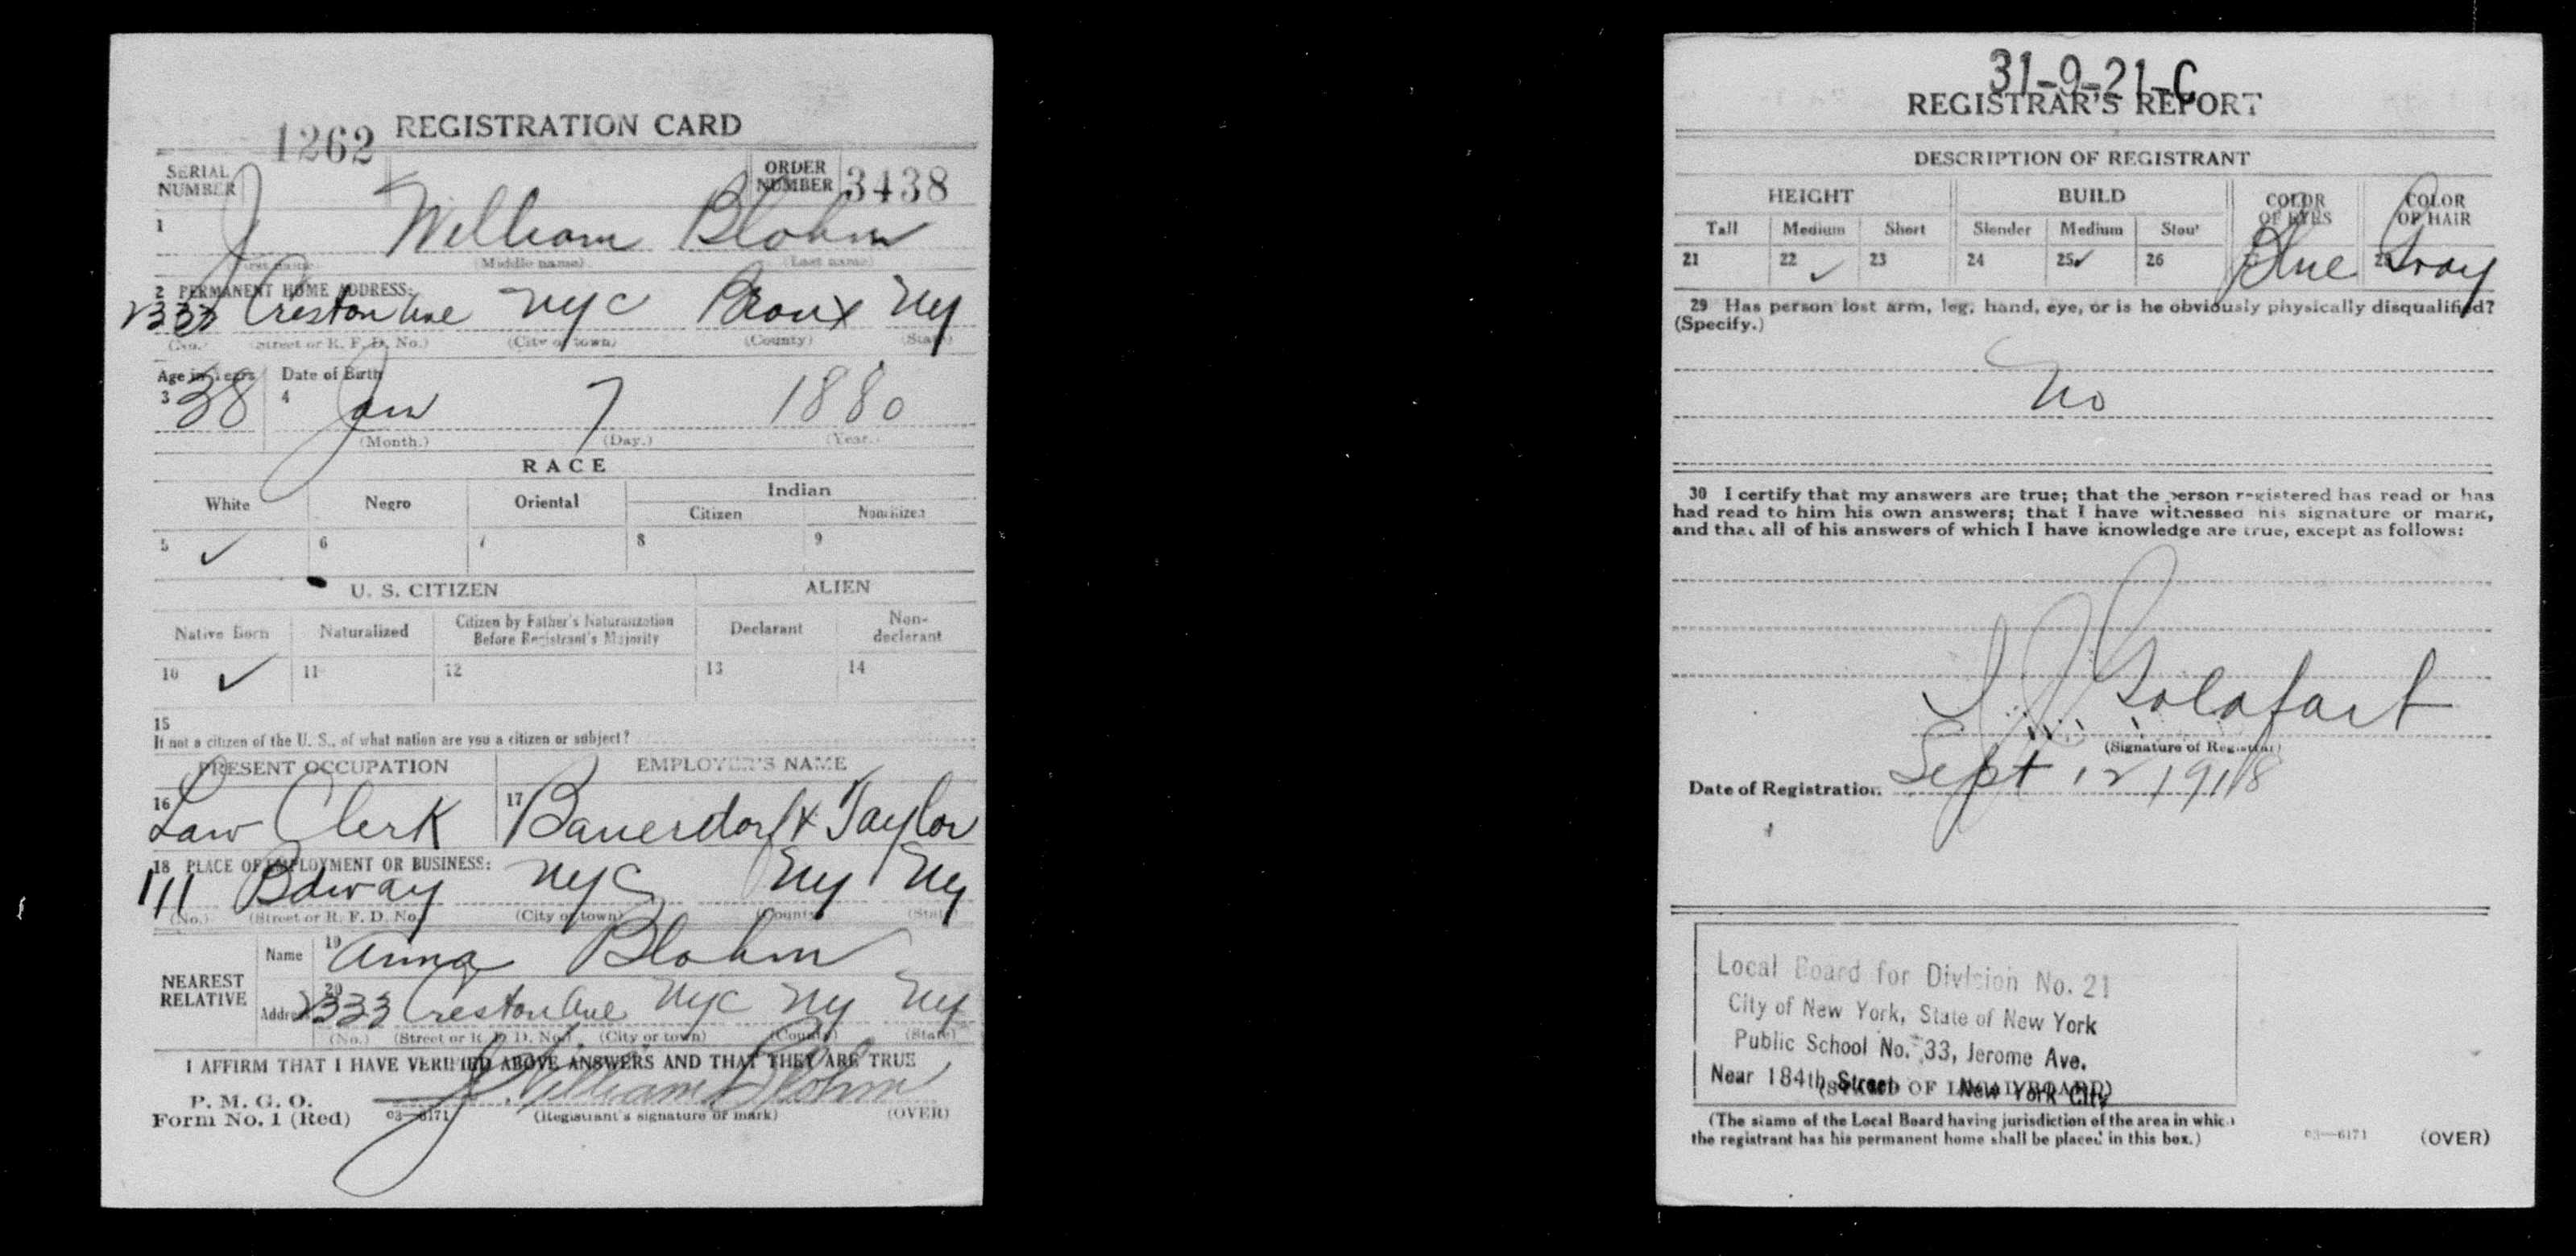 1262 REGISTRATION CARD
SERIAL NUMBER
ORDER NUMBER 3438
1 J William Blohm
(First name) (Middle name) (Last name)
2 PERMANENT HOME ADDRESS:
2333 Creston Ave NYC Bronx NY
(No.) (Street or R. F. D. No.) (City or town) (County) (State)
Age in Years Date of Birth
3 38 4 Jan 7 1880
(Month.) (Day.) (Year.)
RACE
White Negro Oriental Indian
Citizen Noncitizen
5 ✓ 6 7 8 9
U. S. CITIZEN ALIEN
Native Born Naturalized Citizen by Father's Naturalization Before Registrant's Majority Declarant Non-declarant
10 ✓ 11 12 13 14
15
If not a citizen of the U. S., of what nation are you a citizen or subject?
PRESENT OCCUPATION EMPLOYER'S NAME
16 Law Clerk 17 Bauerdorf & Taylor
18 PLACE OF EMPLOYMENT OR BUSINESS:
111 Bdway NYC NY NY
(No.) (Street or R. F. D. No.) (City or town) (County) (State)
NEAREST RELATIVE
Name 19 Anna Blohm
Address 20 2333 Creston Ave NYC NY NY
(No.) (Street or R. F. D. No.) (City or town) (County) (State)
I AFFIRM THAT I HAVE VERIFIED ABOVE ANSWERS AND THAT THEY ARE TRUE
J. William Blohm
P. M. G. O.
Form No. 1 (Red) 03—6171 (Registrant's signature or mark) (OVER)
31-9-21-C
REGISTRAR'S REPORT
DESCRIPTION OF REGISTRANT
HEIGHT BUILD COLOR OF EYES COLOR OF HAIR
Tall Medium Short Slender Medium Stout
21 22 ✓ 23 24 25 ✓ 26 Blue Gray
29 Has person lost arm, leg, hand, eye, or is he obviously physically disqualified?
(Specify.)
No
30 I certify that my answers are true; that the person registered has read or has
had read to him his own answers; that I have witnessed his signature or mark,
and that all of his answers of which I have knowledge are true, except as follows:
(Signature of Registrar)
Date of Registration Sept 12 1918
Local Board for Division No. 21
City of New York, State of New York
Public School No. 33, Jerome Ave.
Near 184th Street New York City
(STAMP OF LOCAL BOARD)
(The stamp of the Local Board having jurisdiction of the area in which
the registrant has his permanent home shall be placed in this box.)
03—6171 (OVER)